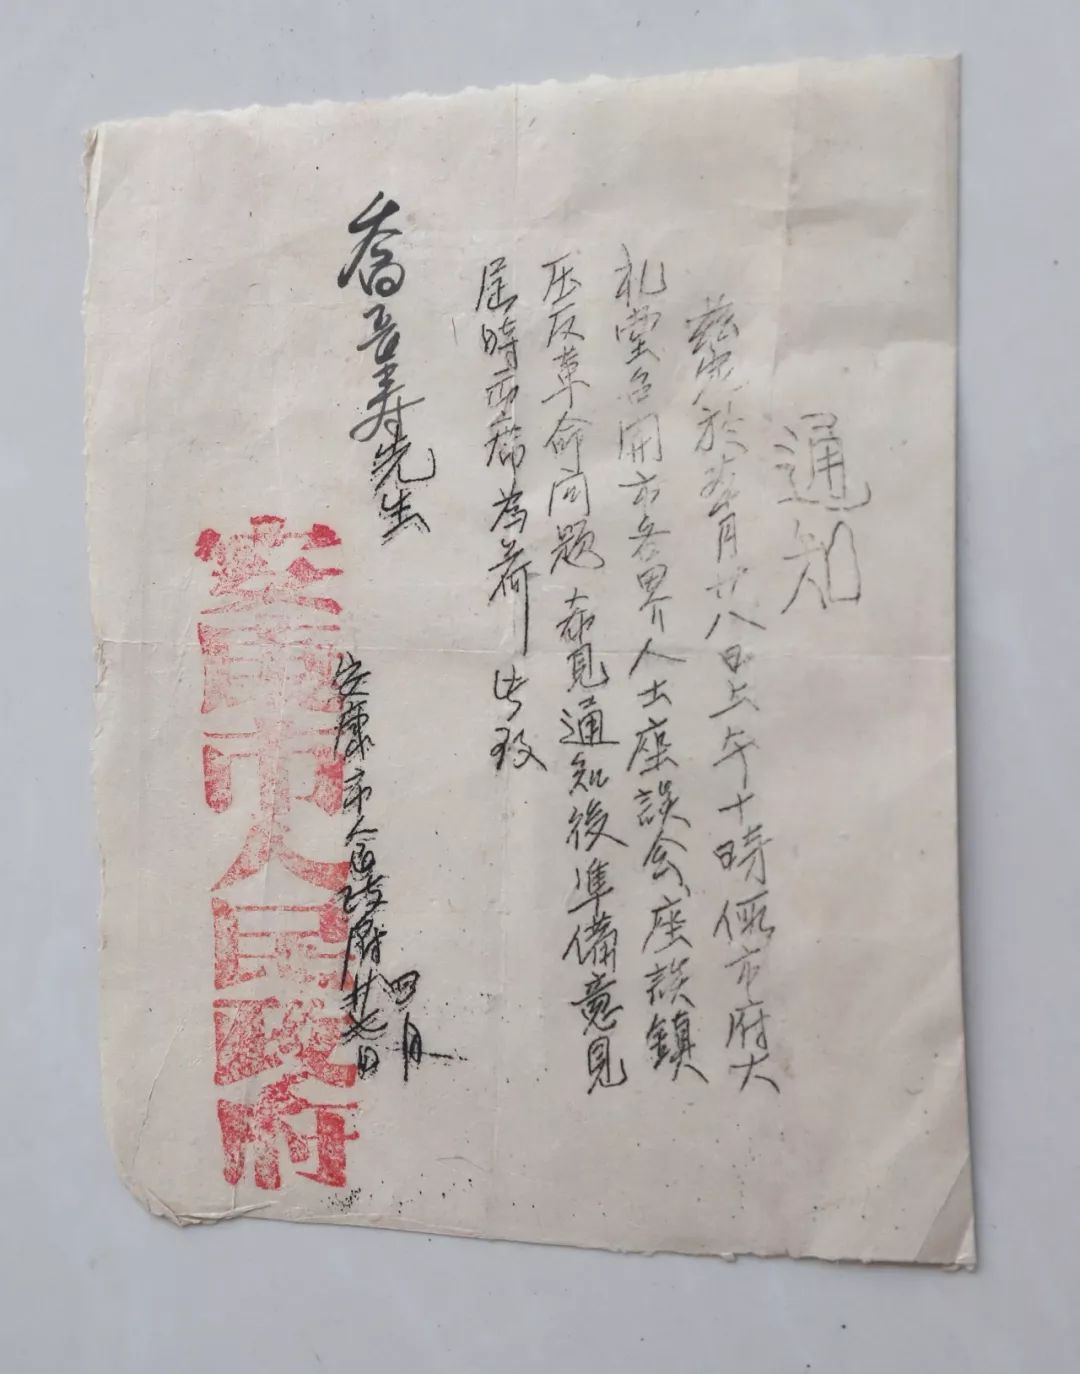 通知
茲定於本月廿八日上午十時假市府大
礼堂召開市各界人士座談会座談鎮
压反革命问题 希見通知後準备意見
届時出席為荷 此致
喬吾寿先生
安康市人民政府 四月廿七日
安康市人民政府